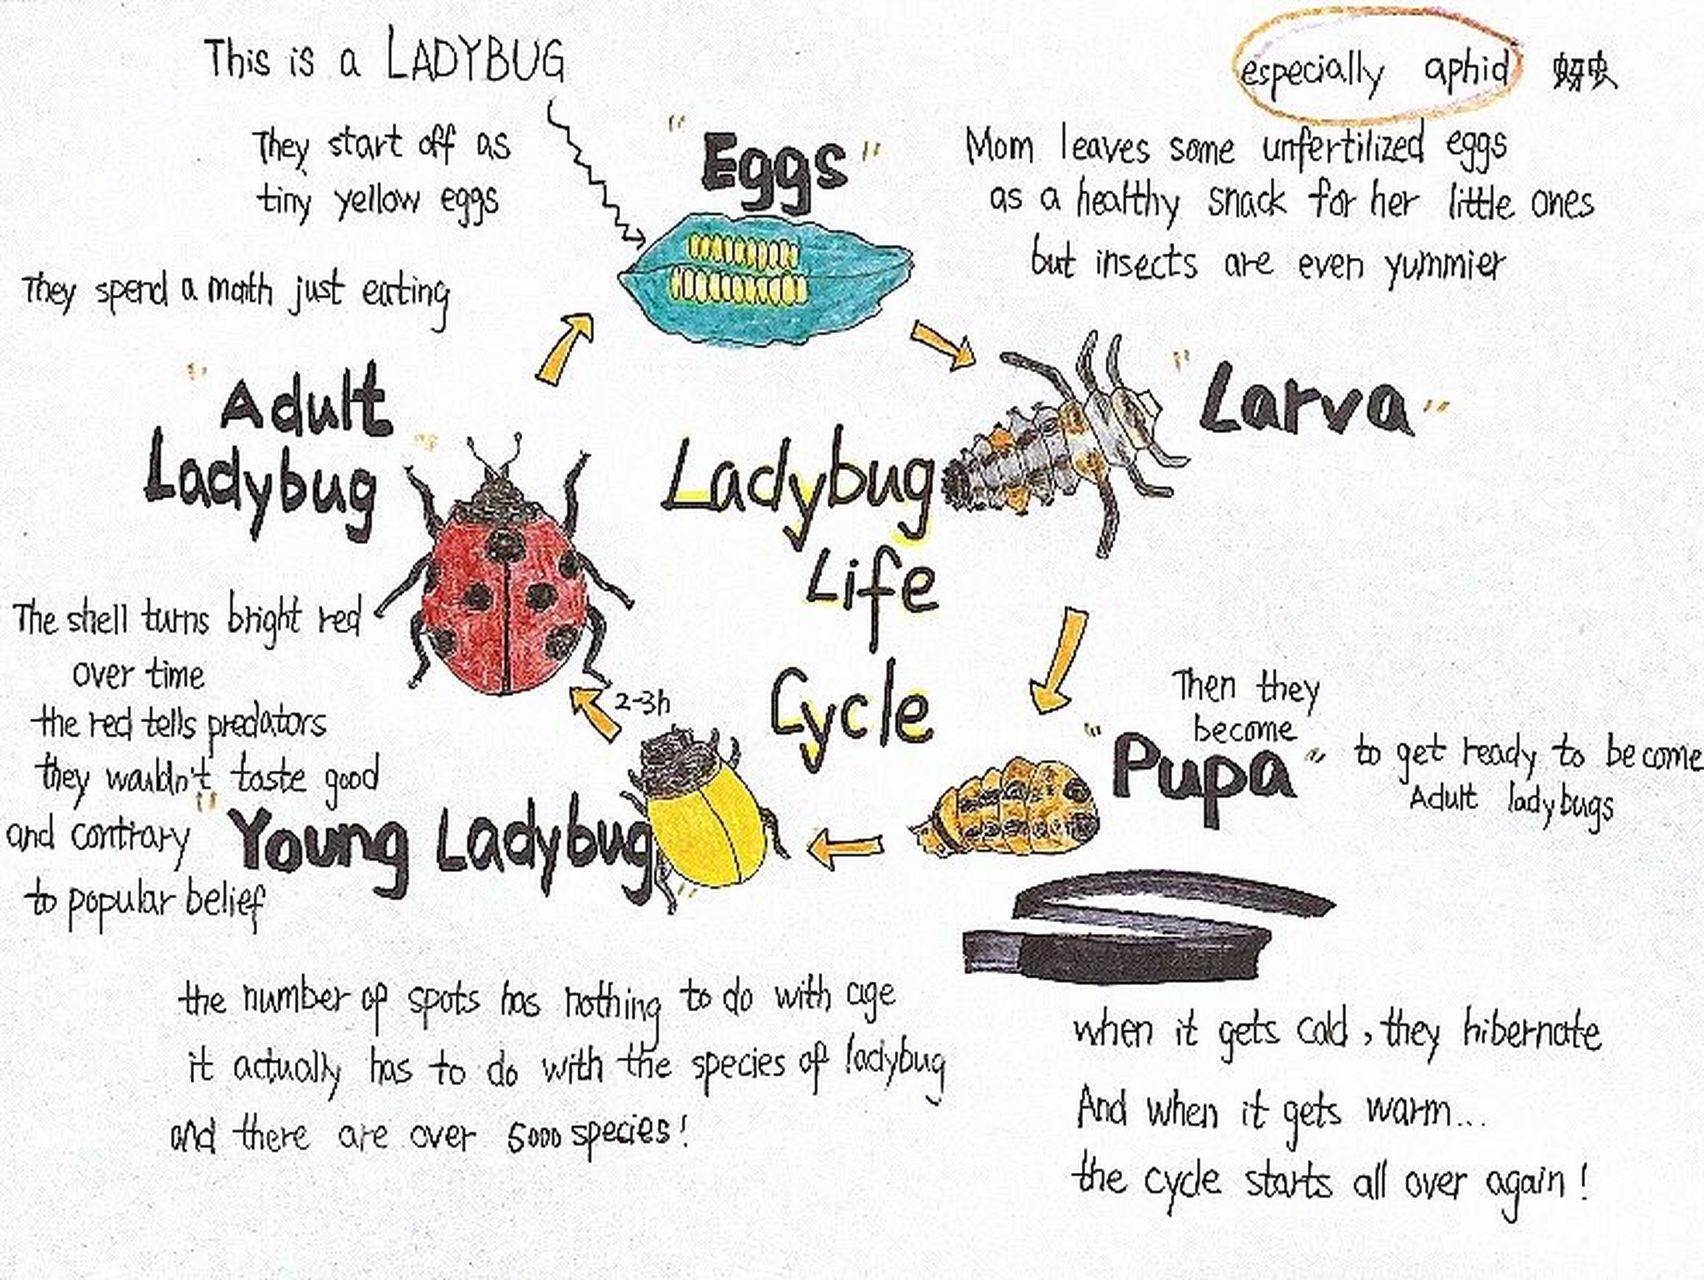 This is a LADYBUG
They start off as
tiny yellow eggs
They spend a moth just eating
"Eggs"
especially aphid 蚜虫
Mom leaves some unfertilized eggs
as a healthy snack for her little ones
but insects are even yummier
"Larva"
Ladybug
Life
Cycle
Then they
become
"Pupa"
to get ready to become
Adult ladybugs
"Young Ladybug"
2-3h
"Adult
Ladybug"
The shell turns bright red
over time
the red tells predators
they wouldn't taste good
and contrary
to popular belief
the number of spots has nothing to do with age
it actually has to do with the species of ladybug
and there are over 5000 species!
when it gets cold, they hibernate
And when it gets warm...
the cycle starts all over again!